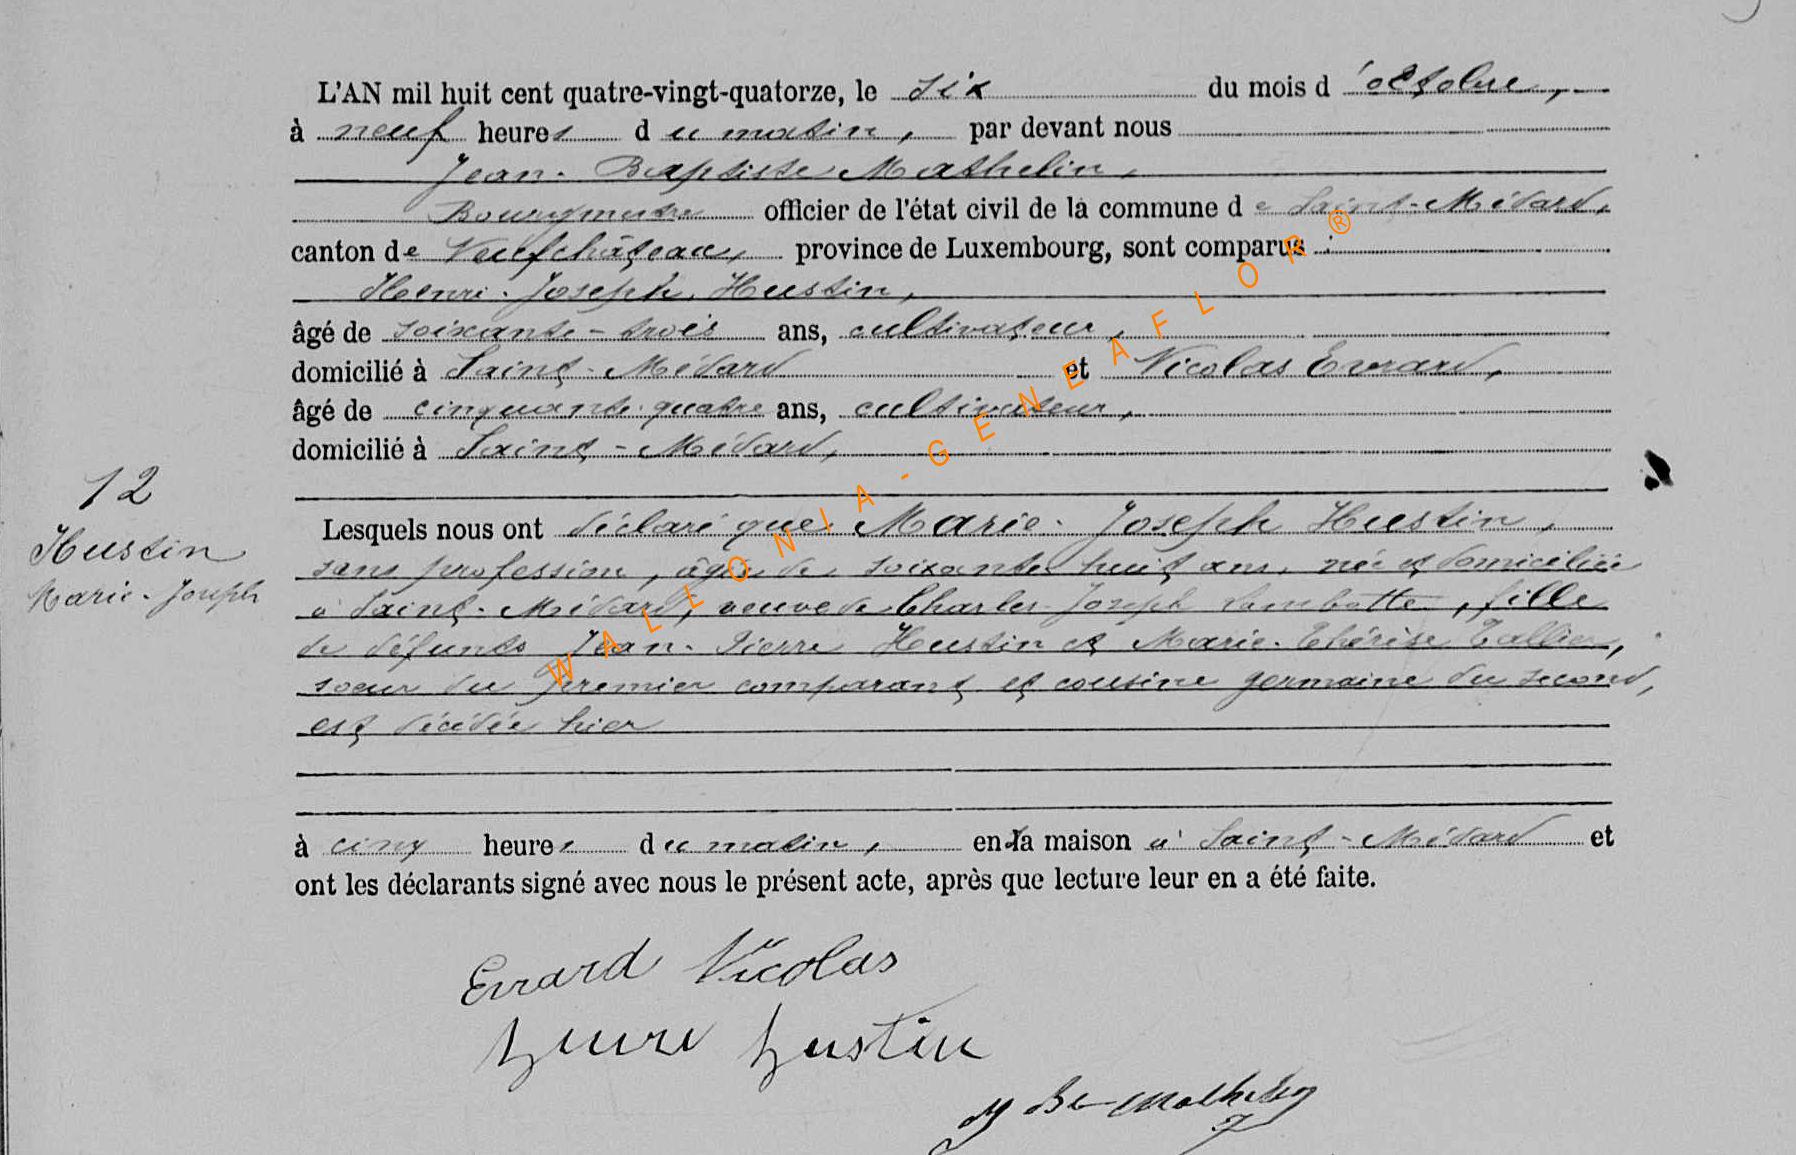 L'AN mil huit cent quatre-vingt-quatorze, le six du mois d'octobre,
à neuf heures du matin, par devant nous
Jean-Baptiste Mathelin,
Bourgmestre officier de l'état civil de la commune de Saint-Médard,
canton de Neufchâteau, province de Luxembourg, sont comparus :
Henri-Joseph Hustin,
âgé de soixante-trois ans, cultivateur,
domicilié à Saint-Médard et Nicolas Evrard,
âgé de cinquante-quatre ans, cultivateur,
domicilié à Saint-Médard,
12
Hustin
Marie-Joseph
Lesquels nous ont déclaré que Marie-Joseph Hustin,
sans profession, âgée de soixante huit ans, née et domiciliée
à Saint-Médard, veuve de Charles-Joseph Lambotte, fille
de défunts Jean-Pierre Hustin et Marie-Thérèse Tallier,
soeur du premier comparant et cousine germaine du second,
est décédée hier
à cinq heures du matin, en la maison à Saint-Médard et
ont les déclarants signé avec nous le présent acte, après que lecture leur en a été faite.
Evrard Nicolas
henri hustin
J Bte Mathelin
WALLONIA-GENEAFLOR®